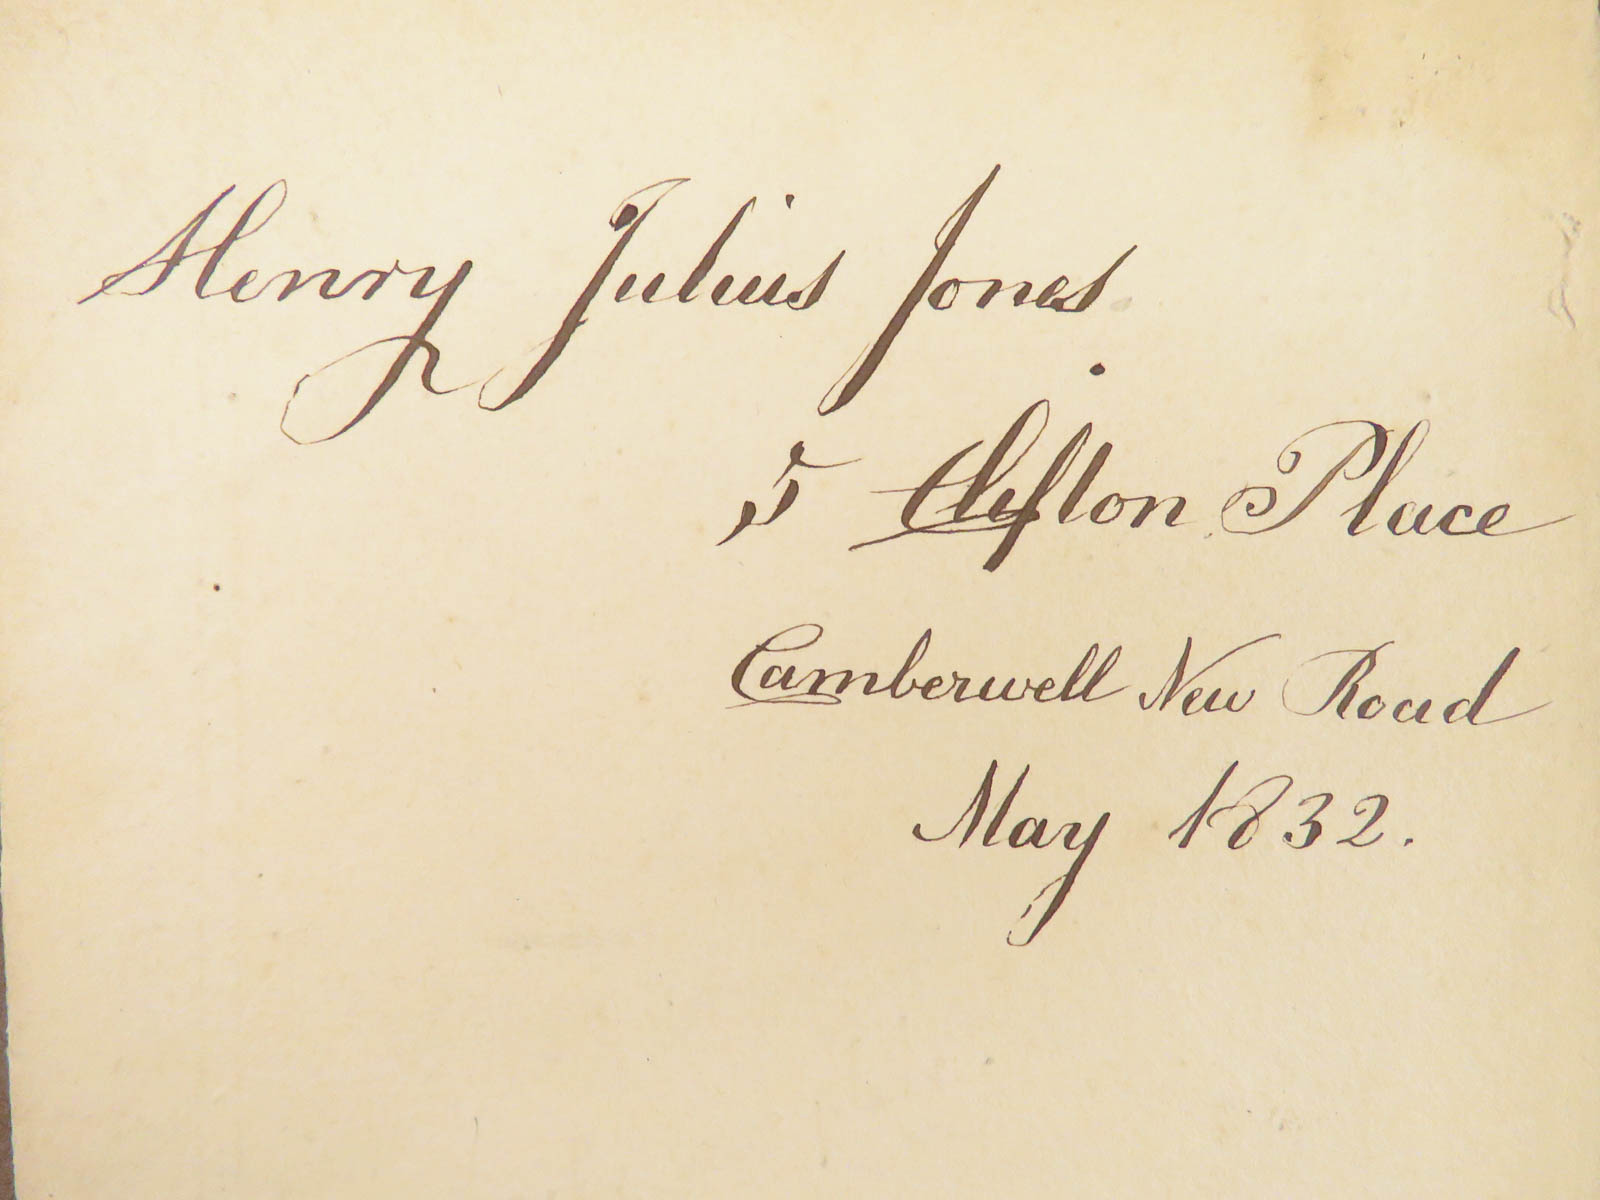 Henry Julius Jones
5 Clifton Place
Camberwell New Road
May 1832.